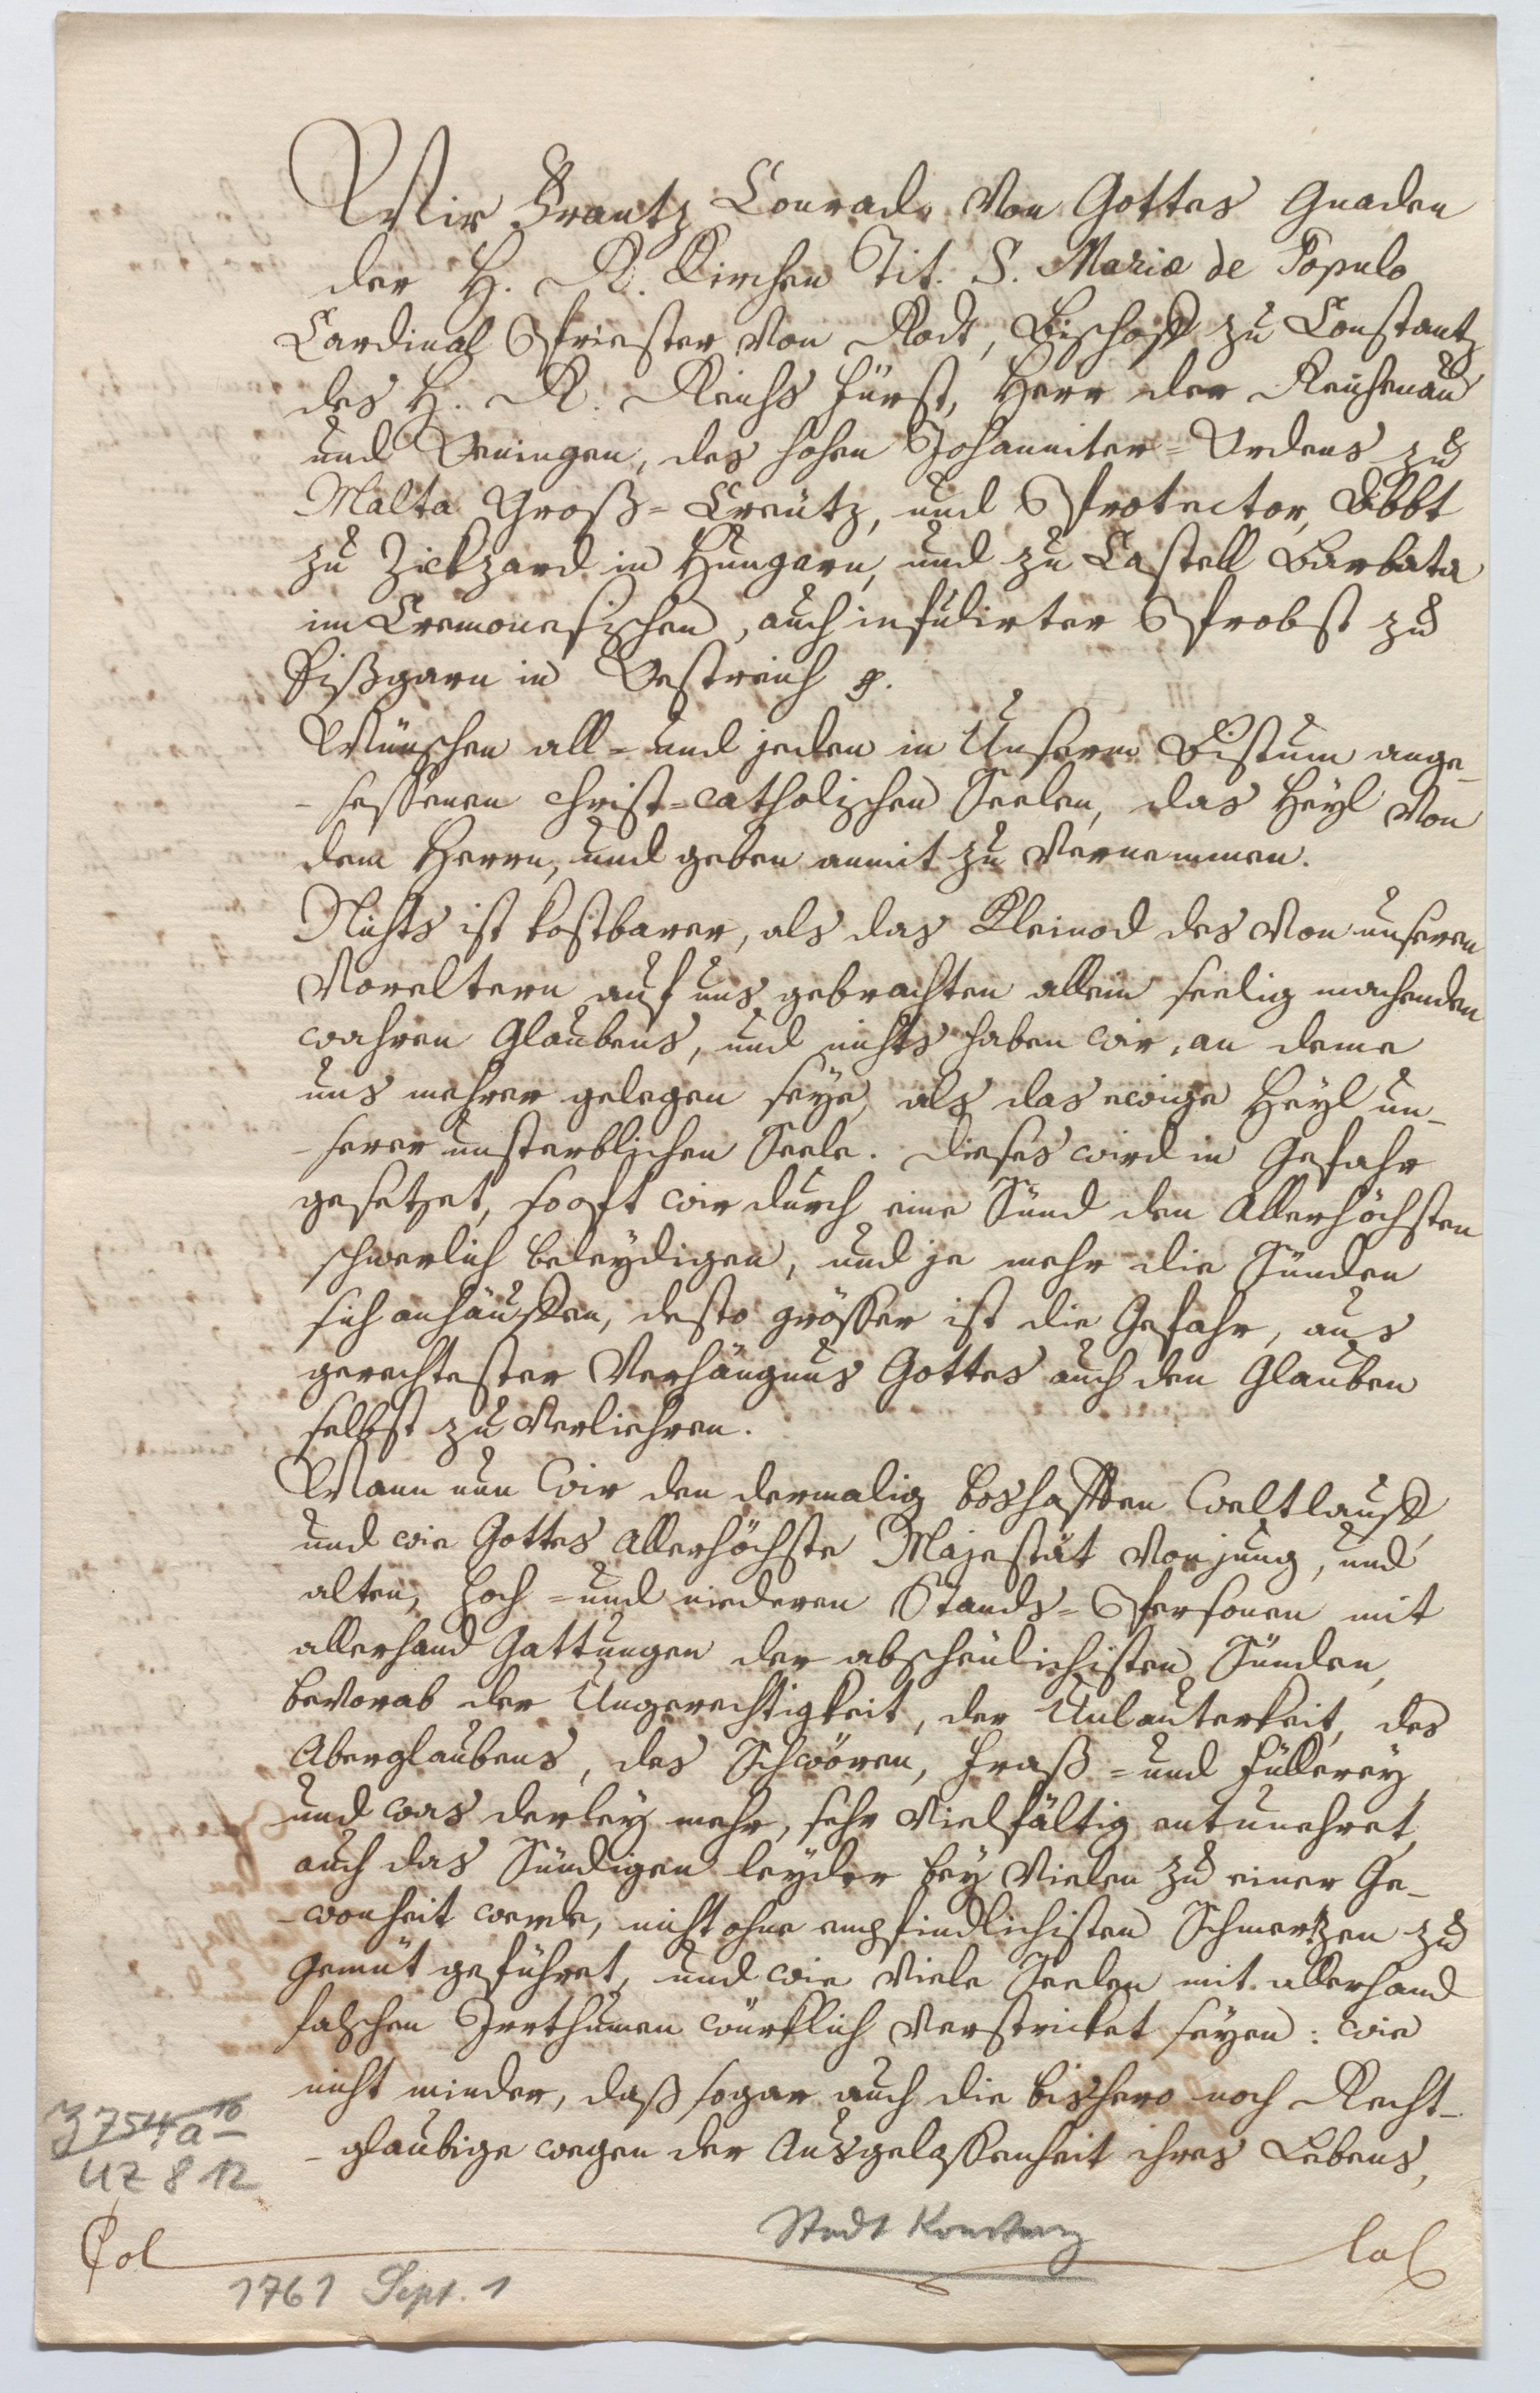 Wir Frantz Conrad von Gottes Gnaden
der H. R. Kirchen Tit. S. Mariæ de Populo
Cardinal Priester von Rodt, Bischoff zu Constantz
des H. R. Reichs Fürst, Herr der Reichenau
und Oeningen, des hohen Johanniter=Ordens zu
Malta Groß=Creütz, und Protector, Abbt
zu Zickzard in Hungarn, und zu Castell Barbata
im Cremonesischen, auch infulirter Probst zu
Eißgarn in Oestreich p.
Wünschen all= und jeden in Unserm Bistum ange-
-sessenen christ=catholischen Seelen, das Heyl von
dem Herrn, und geben anmit zu vernemmen.
Nichts ist kostbarer, als das Kleinod des von unseren
Voreltern auf uns gebrachten allein seelig machenden
wahren Glaubens, und nichts haben wir, an deme
uns mehrer gelegen seye, als das ewige Heyl un-
-serer unsterblichen Seele. Dieses wird in Gefahr
gesetzet, so oft wir durch eine Sünd den Allerhöchsten
schwerlich beleydigen, und je mehr die Sünden
sich anhäuffen, desto grösser ist die Gefahr, aus
gerechtester Verhängnus Gottes auch den Glauben
selbst zu verliehren.
Wann nun Wir den dermalig boshafften Weltlauff,
und wie Gottes Allerhöchste Majestät von jung, und
alten, hoch= und niederen Stands=Persohnen mit
allerhand Gattungen der abscheulichisten Sünden,
bevorab der Ungerechtigkeit, der Unlauterkeit, des
Aberglaubens, des Schwören, Fraß= und Füllerey,
und was derley mehr, sehr vielfältig entunehret,
auch das Sündigen leyder bey vielen zu einer Ge-
-wonheit werde, nicht ohne empfindlichisten Schmertzen zu
Gemüt geführet, und wie viele Seelen mit allerhand
falschen Irrthumen würklich verstricket seyen: wie
nicht minder, daß sogar auch die bishero noch Recht-
-glaubige wegen der Ausgelassenheit ihres Lebens,
Z 754a 16
UZ 8 12
Stadt Konstanz
1761 Sept. 1